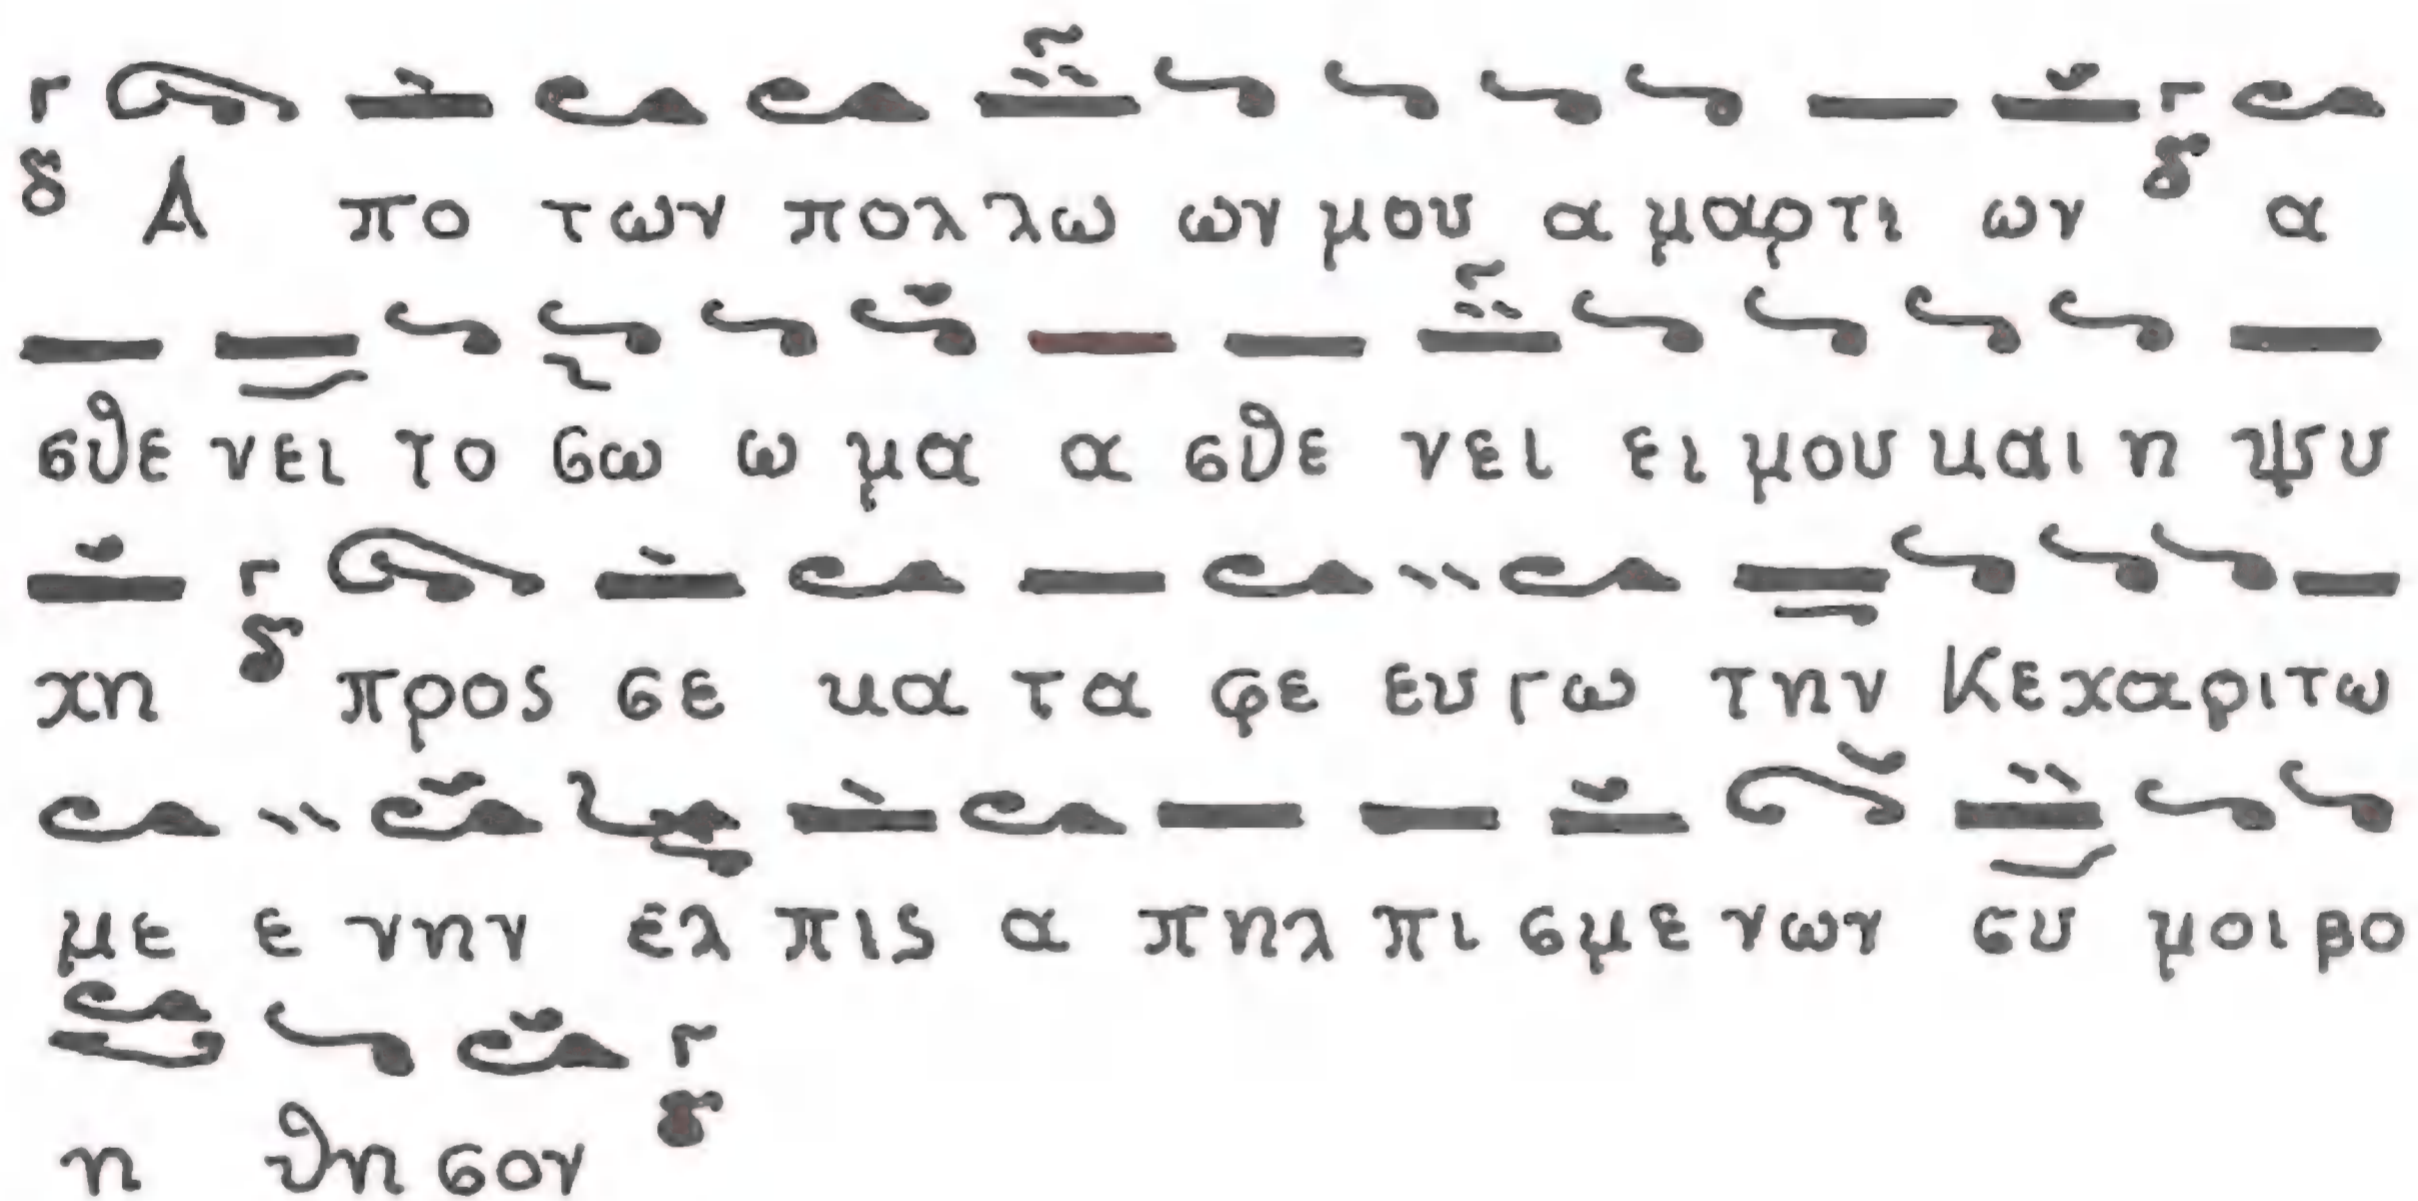 Α πο των πολ λω ων μου α μαρτι ων α
σθε νει το σω ω μα α σθε νει ει μου και η ψυ
χη προς σε κα τα φε ευ γω την Κεχαριτω
με ε νην ελ πις α πηλ πι σμε νων συ μοι βο
η θη σον